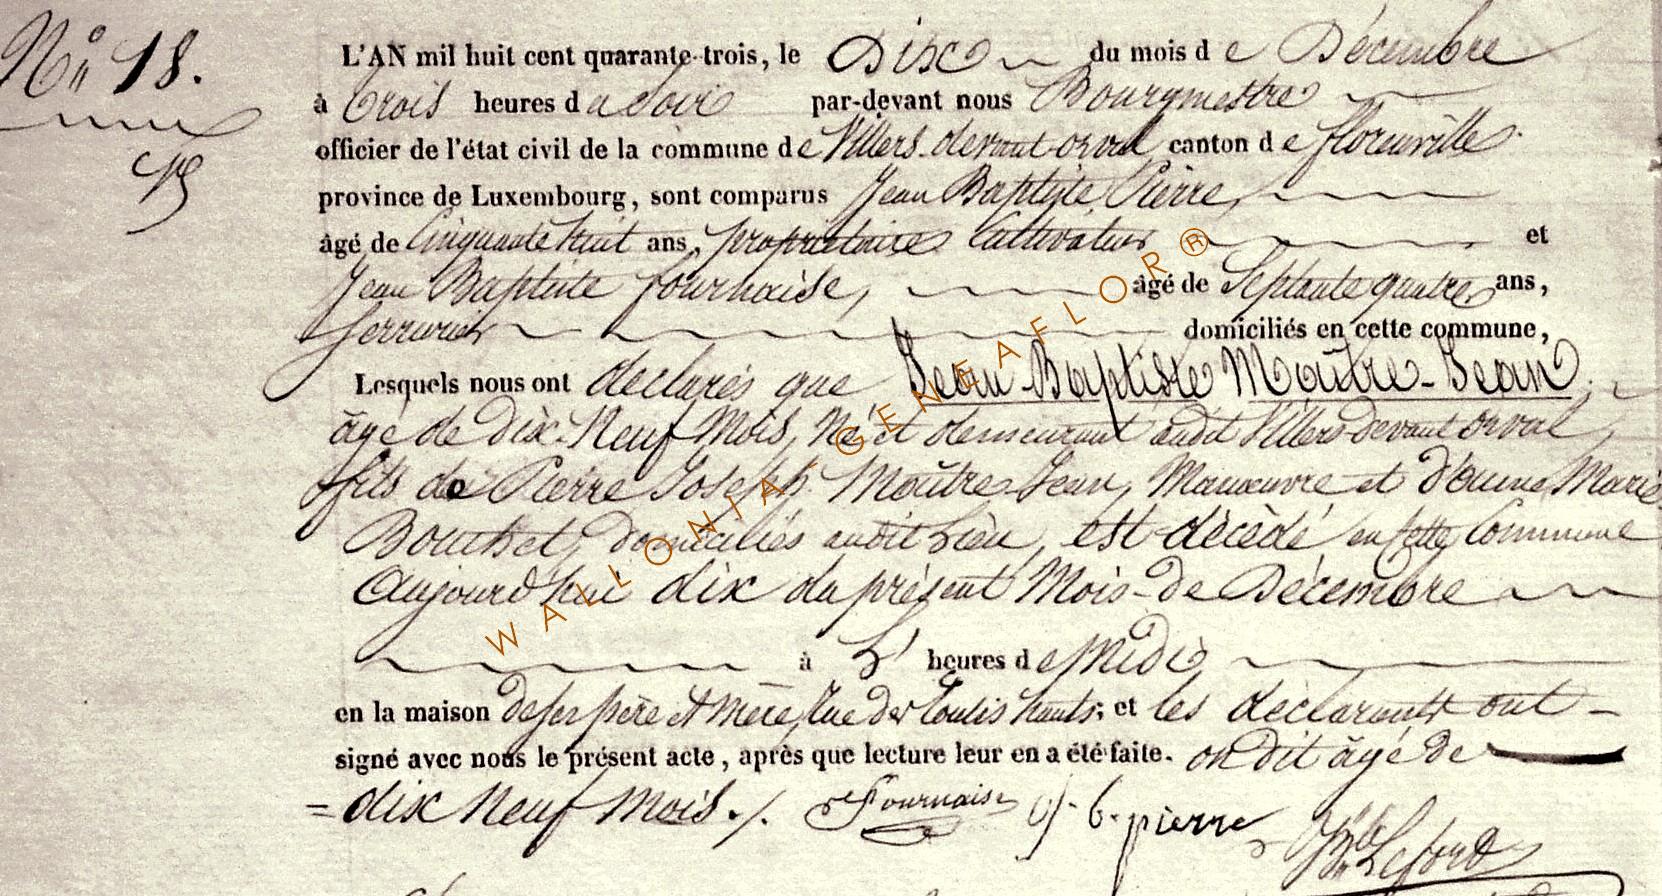 N° 18.
L'AN mil huit cent quarante-trois, le Dix du mois de Décembre
à trois heures du soir par-devant nous Bourgmestre
officier de l'état civil de la commune de Villers-devant-orval canton de florenville
province de Luxembourg, sont comparus Jean Baptiste Pierre,
âgé de Cinquante huit ans, propriétaire Cultivateur et
Jean Baptiste fournaise, âgé de Septante quatre ans,
Serrurier domiciliés en cette commune,
Lesquels nous ont déclarés que Jean-Baptiste Maître-Jean,
âgé de dix-Neuf Mois, Né et demeurant audit Villers-devant orval,
fils de Pierre Joseph Maître Jean, Manœuvre et d'anne Marie
domiciliés audit Lieu, est décédé en Cette Commune
Aujourd'hui dix du présent Mois-de Décembre
à heures de Midi
en la maison de ses père et Mère, Rue des hauts, et les déclarants ont
signé avec nous le présent acte, après que lecture leur en a été faite. on dit âgé de
= dix Neuf Mois ./.
Fournaise J. b. pierre
WALLONIA - GENEAFLOR ®